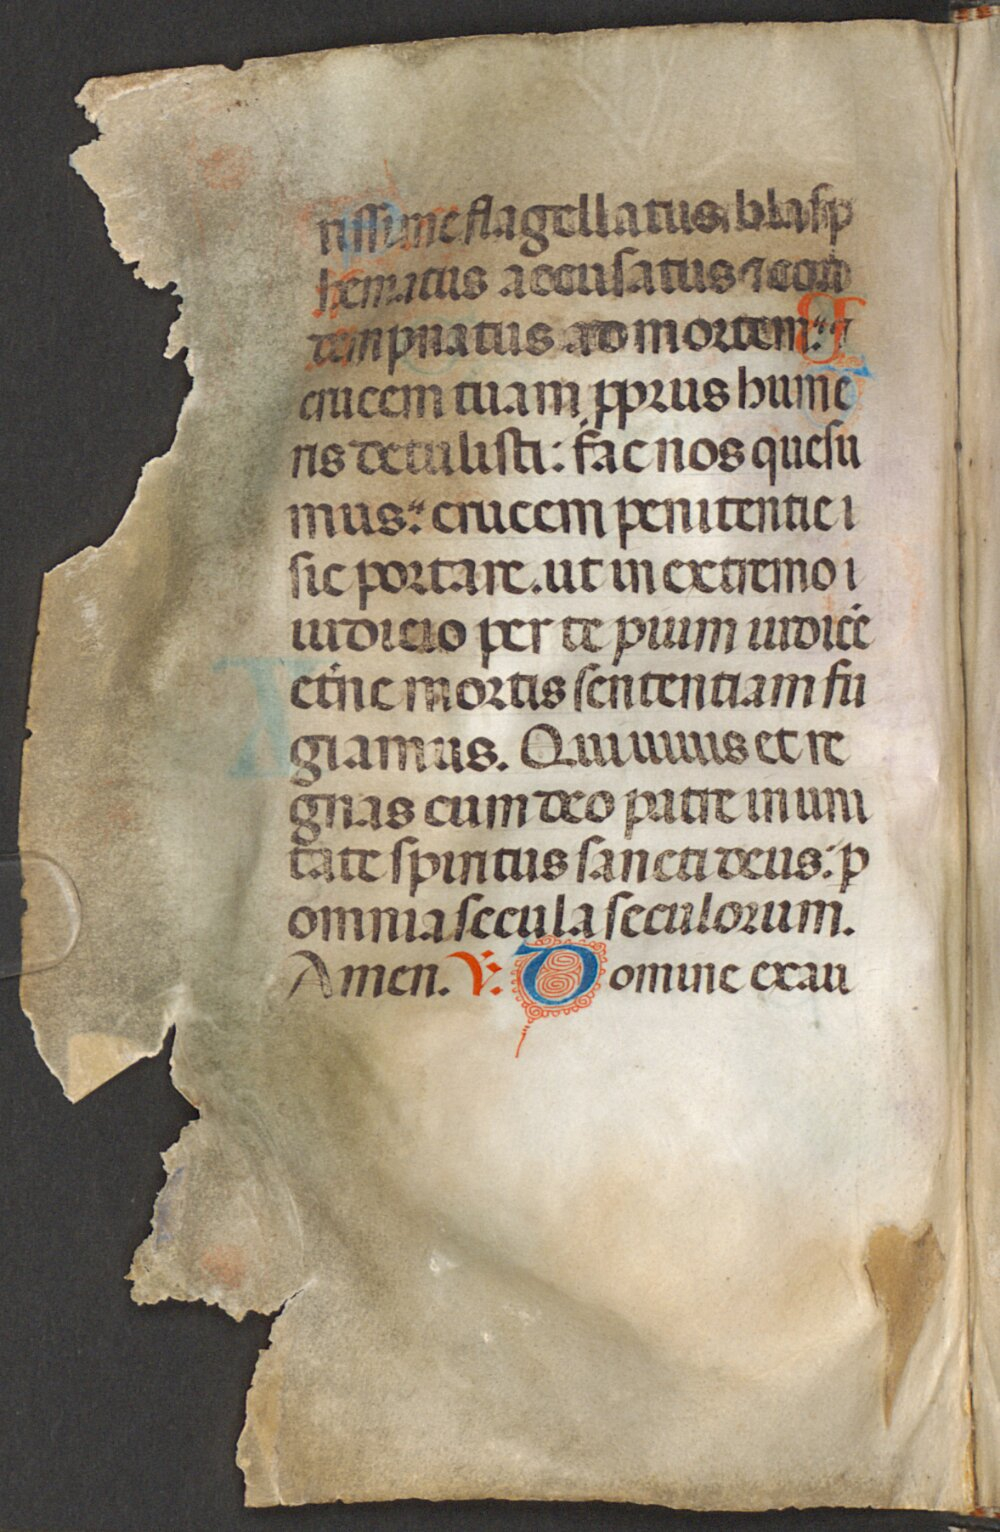 tissime flagellatus, blasp
hematus accusatus ⁊ con
dempnatus ad mortem: ⁊
crucem tuam ꝓprus hume
ris detulisti: fac nos quesu
mus: crucem penitentie i
sic portare. ut in extremo i
iudicio per te pium iudicē
eterne mortis sententiam fu
giamus. Qui uiuis et re
gnas cum deo patre in uni
tate spiritus sancti deus: ꝑ
omnia secula seculorum.
Amen. V: Domine exau